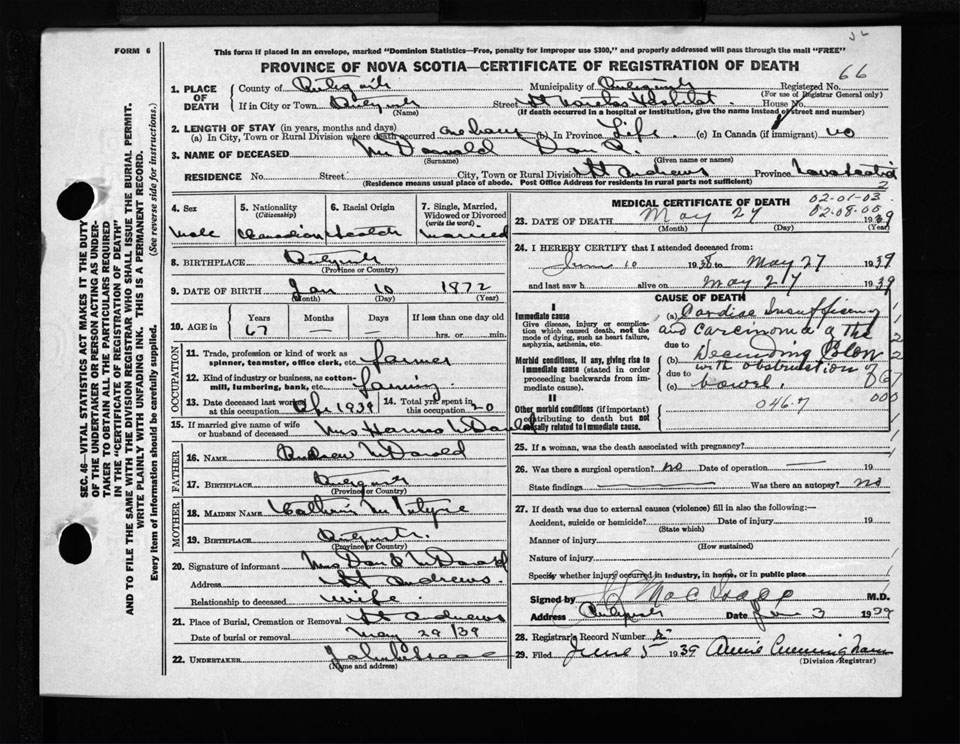 FORM 6
This form if placed in an envelope, marked "Dominion Statistics—Free, penalty for improper use $300," and properly addressed will pass through the mail "FREE"
PROVINCE OF NOVA SCOTIA—CERTIFICATE OF REGISTRATION OF DEATH
66
SEC. 46—VITAL STATISTICS ACT MAKES IT THE DUTY
OF THE UNDERTAKER OR PERSON ACTING AS UNDER-
TAKER TO OBTAIN ALL THE PARTICULARS REQUIRED
IN THE "CERTIFICATE OF REGISTRATION OF DEATH"
AND TO FILE THE SAME WITH THE DIVISION REGISTRAR WHO SHALL ISSUE THE BURIAL PERMIT.
WRITE PLAINLY WITH UNFADING INK. THIS IS A PERMANENT RECORD.
Every item of information should be carefully supplied. (See reverse side for instructions.)
1. PLACE OF DEATH
County of Antigonish Municipality of Antigonish Registered No.
(For use of Registrar General only)
If in City or Town Antigonish Street St House No.
(Name) (If death occurred in a hospital or institution, give the name instead of street and number)
2. LENGTH OF STAY (in years, months and days)
(a) In City, Town or Rural Division where death occurred (b) In Province Life. (c) In Canada (if immigrant) no
3. NAME OF DECEASED McDonald Dan
(Surname) (Given name or names)
RESIDENCE No. Street City, Town or Rural Division St Andrews Province Nova Scotia
(Residence means usual place of abode. Post Office Address for residents in rural parts not sufficient)
2
4. Sex
Male
5. Nationality
(Citizenship)
Canadian
6. Racial Origin
Scotch
7. Single, Married,
Widowed or Divorced
(write the word)
Married
8. BIRTHPLACE Antigonish
(Province or Country)
9. DATE OF BIRTH Jan 10 1872
(Month) (Day) (Year)
10. AGE in
Years Months Days If less than one day old
67 — — hrs. or min.
OCCUPATION
11. Trade, profession or kind of work as
spinner, teamster, office clerk, etc. farmer
12. Kind of industry or business, as cotton-
mill, lumbering, bank, etc. farming
13. Date deceased last worked
at this occupation Apr 1939
14. Total yrs. spent in
this occupation 20
15. If married give name of wife
or husband of deceased Mrs
FATHER
16. NAME Andrew McDonald
17. BIRTHPLACE Antigonish
(Province or Country)
MOTHER
18. MAIDEN NAME McIntyre
19. BIRTHPLACE Antigonish
(Province or Country)
20. Signature of informant Mrs Dan R McDonald
Address St Andrews.
Relationship to deceased wife.
21. Place of Burial, Cremation or Removal St Andrews
Date of burial or removal May 29/39
22. UNDERTAKER John
(Name and address)
MEDICAL CERTIFICATE OF DEATH
02-01-03
02-08-00
23. DATE OF DEATH May 27 1939
(Month) (Day) (Year)
24. I HEREBY CERTIFY that I attended deceased from:
June 10 1938 to May 27 1939
and last saw h alive on May 27 1939
CAUSE OF DEATH
I
Immediate cause
Give disease, injury or complica-
tion which caused death, not the
mode of dying, such as heart failure,
asphyxia, asthenia, etc.
Morbid conditions, if any, giving rise to
immediate cause (stated in order
proceeding backwards from im-
mediate cause).
II
Other morbid conditions (if important)
contributing to death but not
causally related to immediate cause.
(a) Cardiac Insufficiency
and Carcinoma of the
due to
(b) Descending Colon
due to with obstruction of
(c) bowel.
046.7
25. If a woman, was the death associated with pregnancy?
26. Was there a surgical operation? no Date of operation — 19
State findings Was there an autopsy? no
27. If death was due to external causes (violence) fill in also the following:—
Accident, suicide or homicide? Date of injury 19
(State which)
Manner of injury
(How sustained)
Nature of injury
Specify whether injury occurred in industry, in home, or in public place
Signed by M.D.
Address Antigonish Date June 3 1939
28. Registrar's Record Number
29. Filed June 5 1939 Annie Cunningham
(Division Registrar)